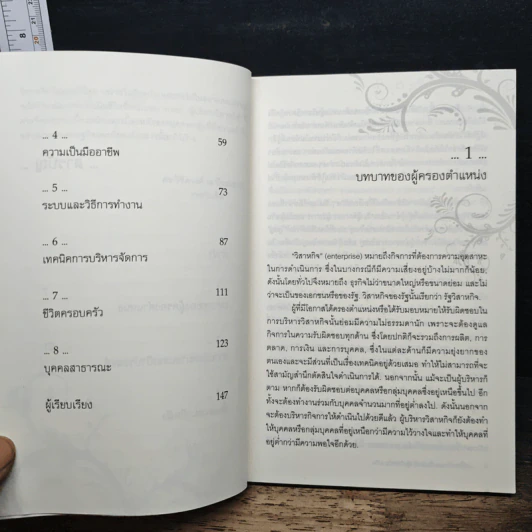 ... 4 ...
ความเป็นมืออาชีพ 59
... 5 ...
ระบบและวิธีการทำงาน 73
... 6 ...
เทคนิคการบริหารจัดการ 87
... 7 ...
ชีวิตครอบครัว 111
... 8 ...
บุคคลสาธารณะ 123
ผู้เรียบเรียง 147
... 1 ...
บทบาทของผู้ครองตำแหน่ง
"วิสาหกิจ" (enterprise) หมายถึงกิจการที่ต้องการความอุตสาหะ
ในการดำเนินการ ซึ่งในบางกรณีก็มีความเสี่ยงอยู่บ้างไม่มากก็น้อย
ดังนั้นโดยทั่วไปจึงหมายถึง ธุรกิจไม่ว่าขนาดใหญ่หรือขนาดย่อม และไม่
ว่าจะเป็นของเอกชนหรือของรัฐ วิสาหกิจของรัฐนั้นเรียกว่า รัฐวิสาหกิจ
ผู้ที่มีโอกาสได้ครองตำแหน่งหรือได้รับมอบหมายให้รับผิดชอบใน
การบริหารวิสาหกิจนั้นย่อมมีความไม่ธรรมดานัก เพราะจะต้องดูแล
กิจการในความรับผิดชอบทุกด้าน ซึ่งโดยปกติก็จะรวมถึงการผลิต, การ
ตลาด, การเงิน และการบุคคล, ซึ่งในแต่ละด้านก็มีความยุ่งยากของ
ตนเองและจะมีส่วนที่เป็นเรื่องเทคนิคอยู่ด้วยเสมอ ทำให้ไม่สามารถที่จะ
ใช้สามัญสำนึกตัดสินใจดำเนินการได้. นอกจากนั้น แม้จะเป็นผู้บริหารก็
ตาม หากก็ต้องรับผิดชอบต่อบุคคลหรือกลุ่มบุคคลซึ่งอยู่เหนือขึ้นไป อีก
ทั้งจะต้องทำงานร่วมกับบุคคลจำนวนมากที่อยู่ต่ำลงไป. ดังนั้นนอกจาก
จะต้องบริหารกิจการให้ดำเนินไปด้วยดีแล้ว ผู้บริหารวิสาหกิจก็ยังต้องทำ
ให้บุคคลหรือกลุ่มบุคคลที่อยู่เหนือกว่ามีความไว้วางใจและทำให้บุคคลที่
อยู่ต่ำกว่ามีความพอใจอีกด้วย.